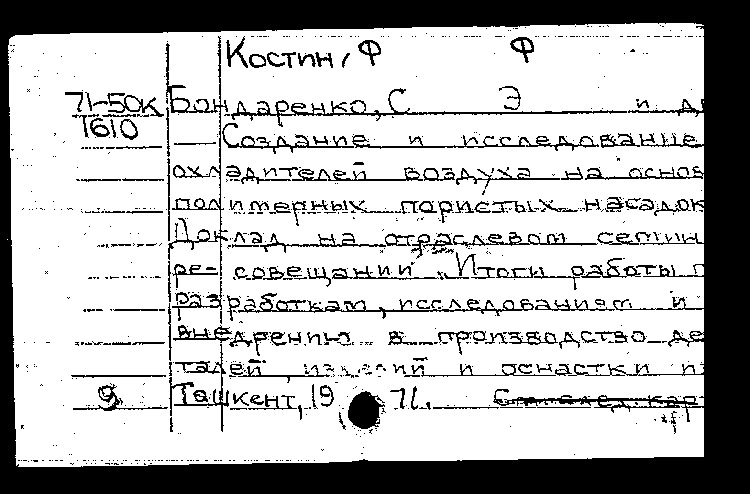 Костин, Ф Ф
71-50к Бондаренко, С Э и др
1610 Создание и исследование
охладителей воздуха на основ
полимерных пористых насадок
Доклад на отраслевом семин
ре-совещании "Итоги работы п
разработкам, исследованиям и
внедрению в производство де
талей, изделий и оснастки из
9 Ташкент, 1971. См. след. кар